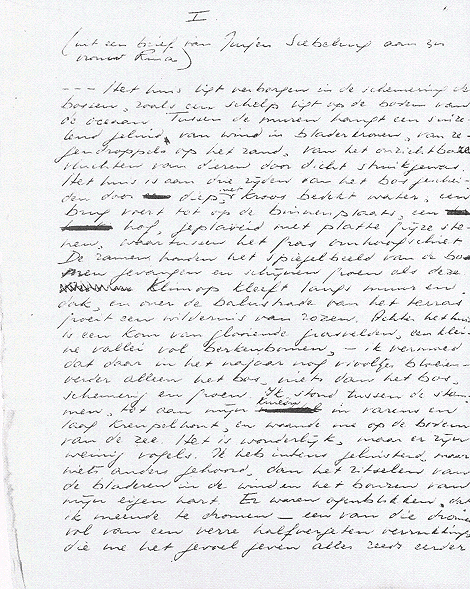 I
(uit een brief van Jurjen Siebeling aan zijn
vrouw Rina)
--- Het huis ligt verborgen in de schemering der
bossen, zoals een schelp ligt op de bodem van
de oceaan. Tussen de muren hangt een suize-
lend geluid, van wind in bladerkronen, van re-
gendroppels op het zand, van het onzichtbare
vluchten van dieren door dicht struikgewas.
Het huis is aan drie zijden van het bos geschei-
den door diep, met kroos bedekt water, een
brug voert tot op de binnenplaats, een
hof, geplaveid met platte grijze ste-
nen, waartussen het gras omhoogschiet.
De ramen houden het spiegelbeeld van de bo-
men gevangen en schijnen groen als deze.
Klimop kleeft langs muur en
dak, en over de balustrade van het terras
groeit een wildernis van rozen. Achter het huis
is een kom van glooiende grasvelden, een klei-
ne vallei vol berkenbomen, – ik vermoed
dat daar in het najaar nog viooltjes bloeien –
verder alleen het bos, niets dan het bos,
schemering en groen. Ik stond tussen de stam-
men, tot aan mijn knieën in varens en
laag kreupelhout, en waande me op de bodem
van de zee. Het is wonderlijk, maar er zijn
weinig vogels. Ik heb intens geluisterd, maar
niets anders gehoord, dan het ritselen van
de bladeren in de wind en het bonzen van
mijn eigen hart. Er waren ogenblikken, dat
ik meende te dromen – een van die dromen
vol van een verre halfvergeten verrukking
die me het gevoel geven alles reeds eerder